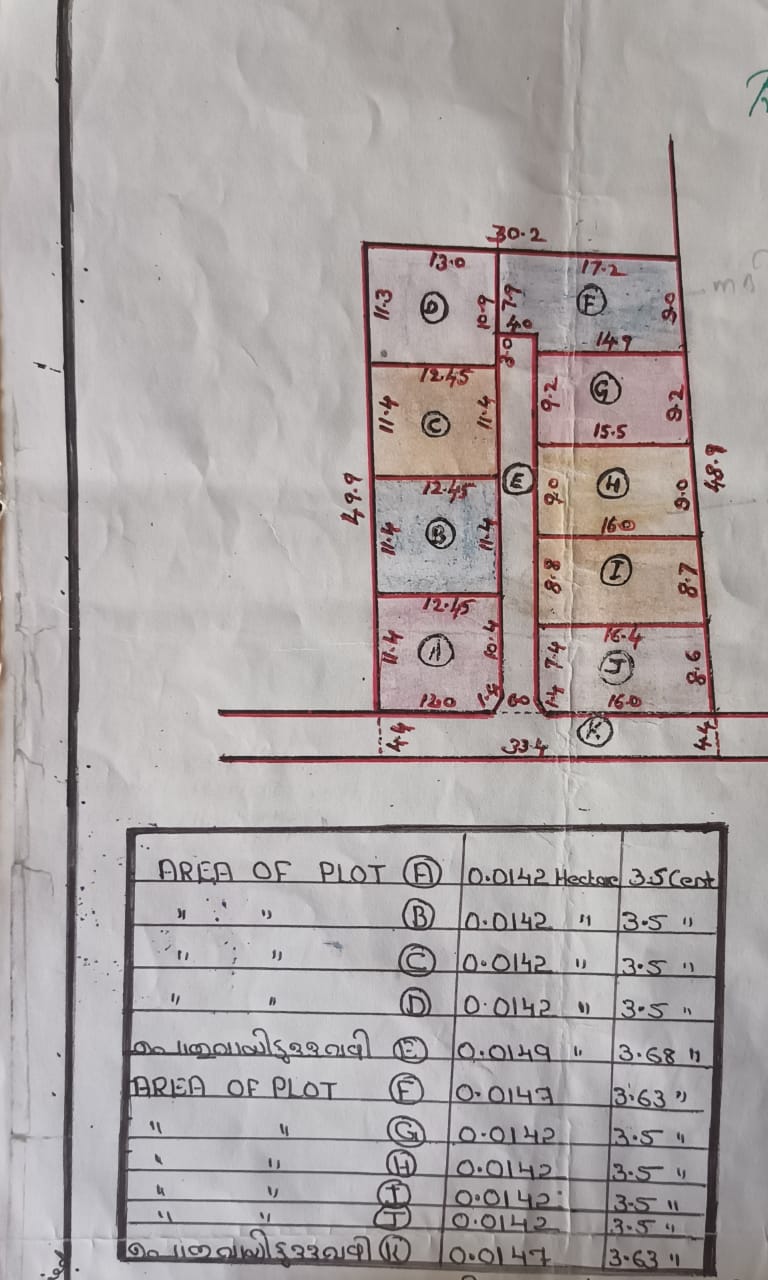 30.2
13.0 17.2
11.3 D 10.9 7.9 F 9.0
4.0
3.0 14.9
12.45
11.4 C 11.4 9.2 G 9.2
15.5
49.9 12.45 E 9.0 H 9.0 48.9
16.0
11.4 B 11.4 8.8 I 8.7
12.45 16.4
11.4 A 10.4 7.4 J 8.6
12.0 1.4 6.0 1.4 16.0
4.4 33.4 K 4.4
AREA OF PLOT A 0.0142 Hectare 3.5 Cent
" " B 0.0142 " 3.5 "
" " C 0.0142 " 3.5 "
" " D 0.0142 " 3.5 "
E 0.0149 " 3.68 "
AREA OF PLOT F 0.0147 3.63 "
" " G 0.0142 3.5 "
" " H 0.0142 3.5 "
" " I 0.0142 3.5 "
" " J 0.0142 3.5 "
K 0.0147 3.63 "